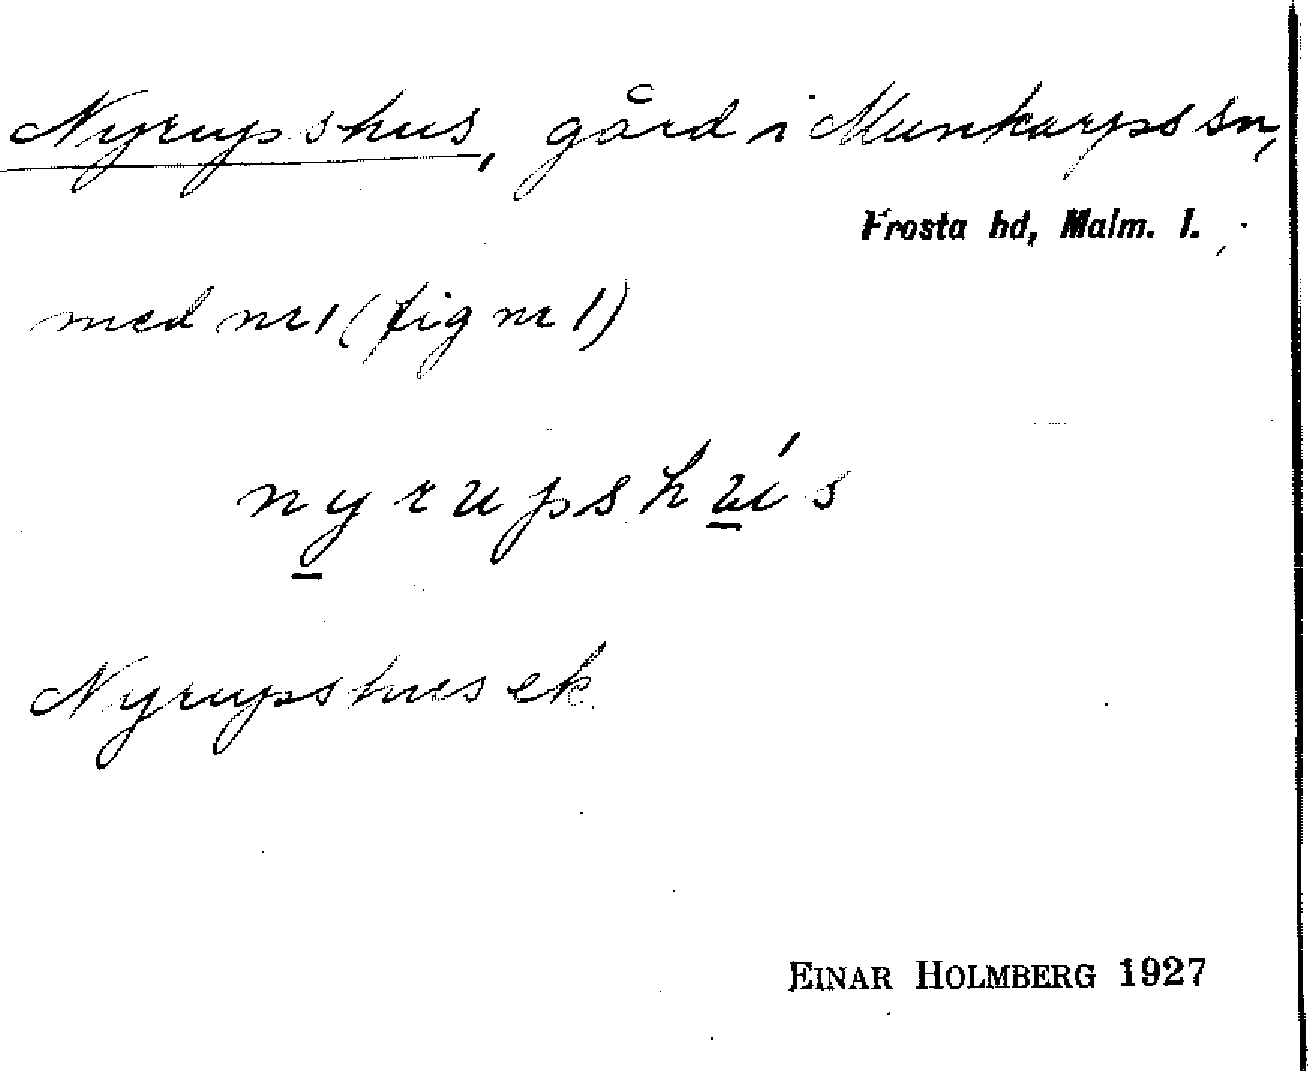 Nyrupshus, gård i Munkarps sn,
Frosta hd, Malm. l.
med nr 1 (fig nr 1)
nyrupshús
Nyrupshus ek.
EINAR HOLMBERG 1927